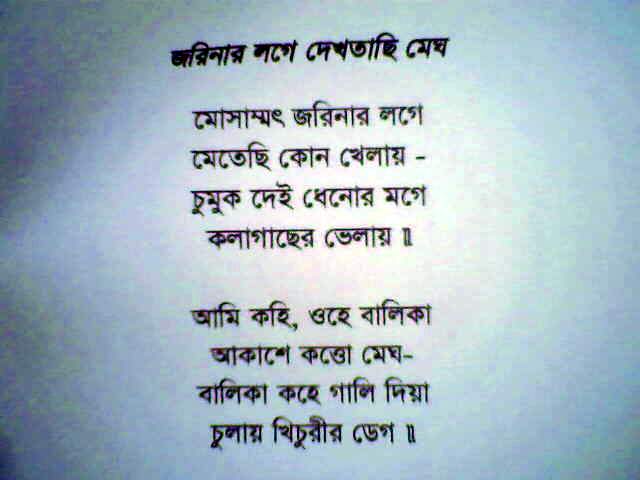 জরিনার লগে দেখতাছি মেঘ
মোসাম্মৎ জরিনার লগে
মেতেছি কোন খেলায় -
চুমুক দেই ধেনোর মগে
কলাগাছের ভেলায় ॥
আমি কহি, ওহে বালিকা
আকাশে কত্তো মেঘ-
বালিকা কহে গালি দিয়া
চুলায় খিচুরীর ডেগ ॥